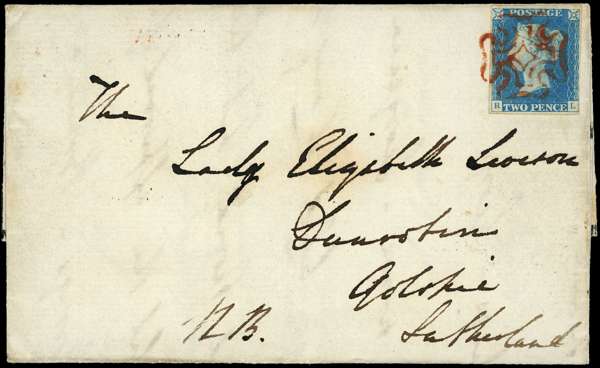 POSTAGE
R TWO PENCE L
The
Lady Elizabeth Leveson
Dunrobin
Golspie
N.B. Sutherland